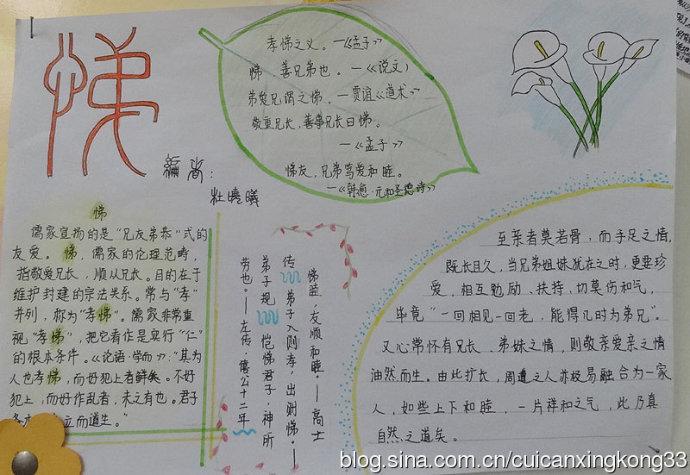 悌
编者:
杜晓曦
孝悌之义。—《孟子》
悌 善兄弟也。—《说文》
弟爱兄谓之悌。—贾谊《道术》
敬重兄长,善事兄长曰悌。
—《孟子》
悌友,兄弟笃爱和睦。
—《韩愈·元和圣德诗》
悌
儒家宣扬的是“兄友弟恭”式的
友爱。悌,儒家的伦理范畴,
指敬爱兄长,顺从兄长。目的在于
维护封建的宗法关系。常与“孝”
并列,称为“孝悌”。儒家非常重
视“孝悌”,把它看作是实行“仁”
的根本条件。《论语·学而》:“其为
人也孝悌,而好犯上者鲜矣。不好
犯上,而好作乱者,未之有也。君子
立而道生。”
悌益,友顺和睦。—高士
传 弟子入则孝,出则悌—
弟子规 恺悌君子,神所
劳也。—左传·僖公十二年
至亲者莫若骨,而手足之情,
既长且久,当兄弟姐妹犹在之时,更要珍
爱,相互勉励、扶持,切莫伤和气,
毕竟“一回相见一回老,能得几时为弟兄”。
又心常怀有兄长、弟妹之情,则敬亲爱亲之情
油然而生。由此扩长,周遭之人亦极易融合为一家
人,如些上下和睦,一片祥和之气,此乃真
自然之道矣。
blog.sina.com.cn/cuicanxingkong33